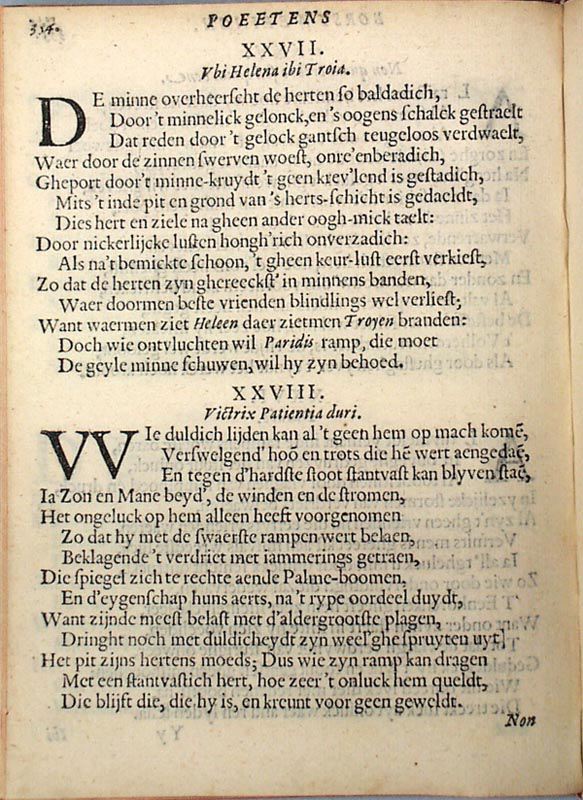 354. POEETENS
XXVII.
Vbi Helena ibi Troia.
DE minne overheerscht de herten so baldadich,
Door 't minnelick gelonck, en 's oogens schalck gestraelt
Dat reden door 't gelock gantsch teugeloos verdwaelt,
Waer door de zinnen swerven woest, onre'enberadich,
Gheport door't minne-kruydt 't geen krev'lend is gestadich,
Mits 't inde pit en grond van 's herts-schicht is gedaeldt,
Dies hert en ziele na gheen ander oogh-mick taelt:
Door nickerlijcke lusten hongh'rich onverzadich:
Als na't bemickte schoon, 't gheen keur-lust eerst verkiest,
Zo dat de herten zyn ghereeckst' in minnens banden,
Waer doormen beste vrienden blindlings wel verliest;
Want waermen ziet Heleen daer zietmen Troyen branden:
Doch wie ontvluchten wil Paridis ramp, die moet
De geyle minne schuwen, wil hy zyn behoed.
XXVIII.
Victrix Patientia duri.
WIe duldich lijden kan al 't geen hem op mach komē,
Verswelgend' hoō en trots die hē wert aengedaē,
En tegen d'hardste stoot stantvast kan blyven staē,
Ia Zon en Mane beyd', de winden en de stromen,
Het ongeluck op hem alleen heeft voorgenomen
Zo dat hy met de swaerste rampen wert belaen,
Beklagende 't verdriet met iammerings getraen,
Die spiegel zich te rechte aende Palme-boomen,
En d'eygenschap huns aerts, na 't rype oordeel duydt,
Want zijnde meest belast met d'aldergrootste plagen,
Dringht noch met duldicheydt zyn weel'ghe spruyten uyt,
Het pit zijns hertens moeds; Dus wie zyn ramp kan dragen
Met een stantvastich hert, hoe zeer 't onluck hem queldt,
Die blijft die, die hy is, en kreunt voor geen geweldt.
Non